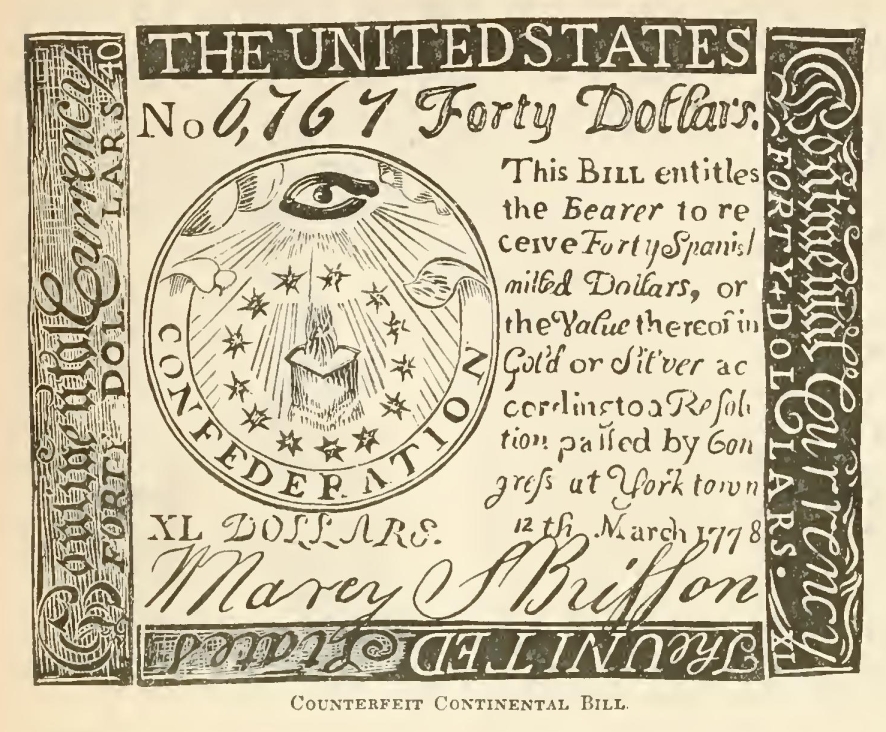 THE UNITED STATES
No 6,767 Forty Dollars.
This BILL entitles
the Bearer to re
ceive Forty Spanish
milled Dollars, or
the Value thereof in
Gold or Silver ac
cording to a Resolu
tion passed by Con
gress at York town
12th. March 1778
CONFEDERATION
XL DOLLARS.
W Marcy S Brisson
The UNITED States
Continental Currency
FORTY DOLLARS 40
Continental Currency
FORTY-DOLLARS. XL
COUNTERFEIT CONTINENTAL BILL.